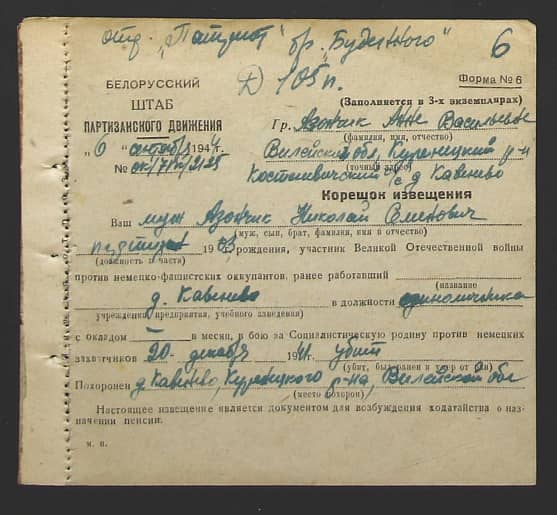 отр. "Патриот" бр. "Буденного" 6
Д 105 п.
БЕЛОРУССКИЙ
ШТАБ
ПАРТИЗАНСКОГО ДВИЖЕНИЯ
"6" октября 1944
№
Форма № 6
(Заполняется в 3-х экземплярах)
Гр. Азончик Анне Васильевне
(фамилия, имя, отчество)
Вилейской обл, Куренецкий р-н
(точный адрес)
Костеневичский с/с д Кавенево
Корешок извещения
Ваш муж Азончик Николай Семенович
(муж, сын, брат, фамилия, имя и отчество)
1903 рождения, участник Великой Отечественной войны
(должность и части)
против немецко-фашистских оккупантов, ранее работавший
(название
д. Кавенево в должности единоличника
учреждения предприятия, учебного заведения)
с окладом — в месяц, в бою за Социалистическую родину против немецких
захватчиков 20. декабря 194 убит
(убит, был ранен и умер от ран)
Похоронен д Кавенево, Куренецкого р-на, Вилейской обл
(место похорон)
Настоящее извещение является документом для возбуждения ходатайства о наз-
начении пенсии.
м. п.